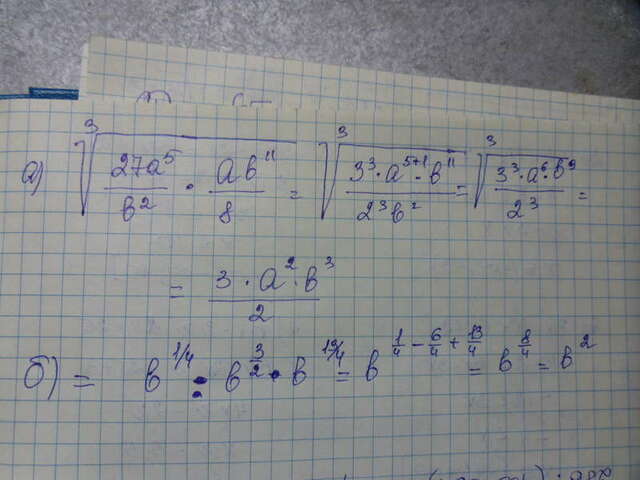 а) ∛(27a⁵/b² · ab¹¹/8) = ∛(3³·a⁵⁺¹·b¹¹/2³b²) = ∛(3³·a⁶·b⁹/2³) =
= 3·a²·b³/2
б) = b^(1/4) : b^(3/2) · b^(13/4) = b^(1/4 − 6/4 + 13/4) = b^(8/4) = b²